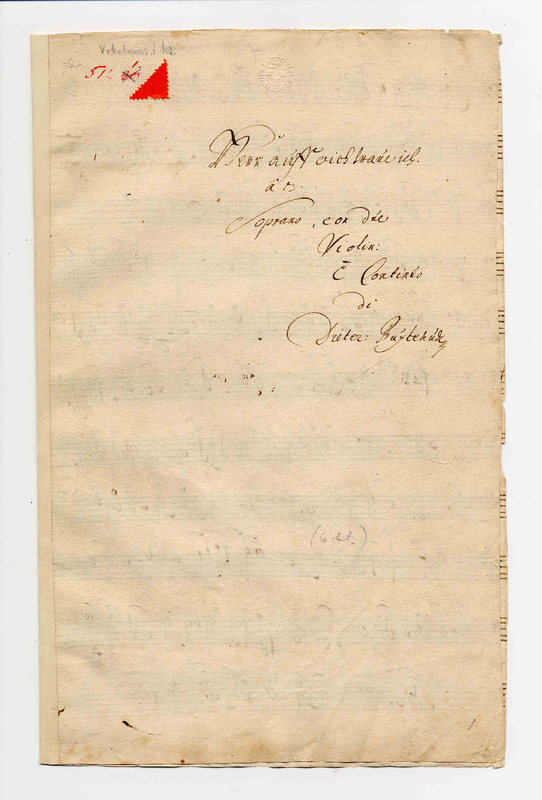 Vokalmus. i hs.
51:
Herr auff dich traue ich.
â 3.
Soprano, con due
Violin:
è Continuo
di
Dieter: Buxtehude
(6 bl.)
1